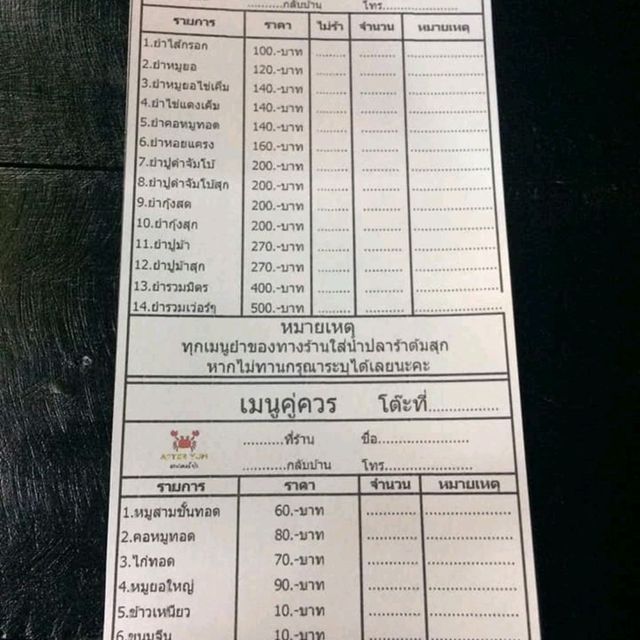 ...........กลับบ้าน โทร.....................
รายการ ราคา ไม่ร้า จำนวน หมายเหตุ
1.ยำไส้กรอก 100.-บาท
2.ยำหมูยอ 120.-บาท
3.ยำหมูยอไข่เค็ม 140.-บาท
4.ยำไข่แดงเค็ม 140.-บาท
5.ยำคอหมูทอด 140.-บาท
6.ยำหอยแครง 160.-บาท
7.ยำปูดำจัมโบ้ 200.-บาท
8.ยำปูดำจัมโบ้สุก 200.-บาท
9.ยำกุ้งสด 200.-บาท
10.ยำกุ้งสุก 200.-บาท
11.ยำปูม้า 270.-บาท
12.ยำปูม้าสุก 270.-บาท
13.ยำรวมมิตร 400.-บาท
14.ยำรวมเว่อร์ๆ 500.-บาท
หมายเหตุ
ทุกเมนูยำของทางร้านใส่น้ำปลาร้าต้มสุก
หากไม่ทานกรุณาระบุได้เลยนะคะ
เมนูคู่ควร โต๊ะที่..................
..........ที่ร้าน ชื่อ......................
AFTER YUM
...........กลับบ้าน โทร.....................
รายการ ราคา จำนวน หมายเหตุ
1.หมูสามชั้นทอด 60.-บาท
2.คอหมูทอด 80.-บาท
3.ไก่ทอด 70.-บาท
4.หมูยอใหญ่ 90.-บาท
5.ข้าวเหนียว 10.-บาท
6.ขนมจีน 10.-บาท